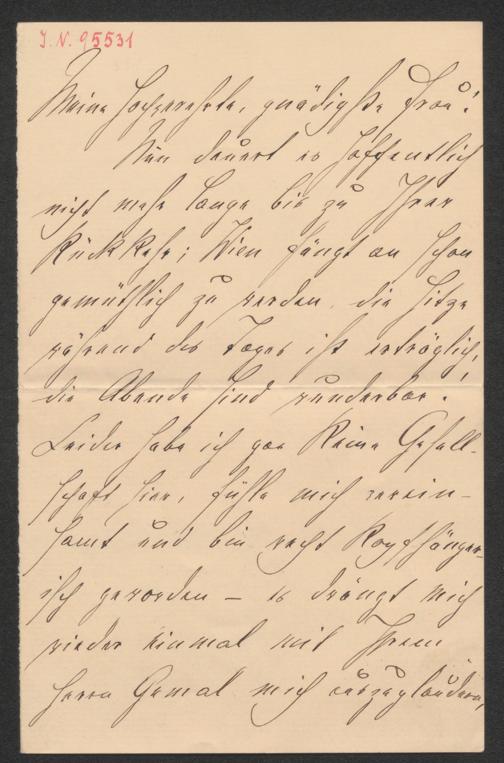 J. N. 95531
Meine hochverehrte, gnädigste Frau!
Nun dauert es hoffentlich
nicht mehr lange bis zu Ihrer
Rückkehr; Wien fängt an schon
gemüthlich zu werden, die Hitze
während des Tages ist erträglich,
die Abende sind wunderbar!
Leider habe ich gar keine Gesell-
schaft hier, fühle mich verein-
samt und bin recht kopfhänger-
isch geworden – es drängt mich
wieder einmal mit Ihrem
Herrn Gemal mich auszuplaudern,